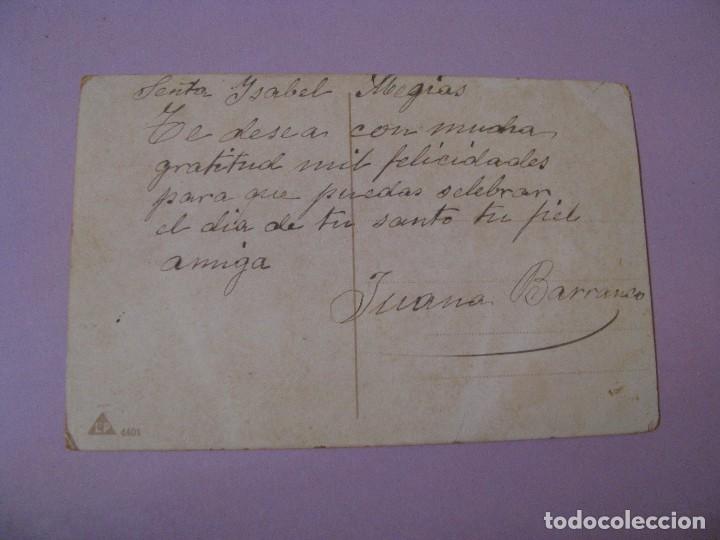 Señta Ysabel Megias
Te desea con mucha
gratitud mil felicidades
para que puedas selebrar
el dia de tu santo tu fiel
amiga
Juana Barranco
LP 4401
todocoleccion
todocoleccion.net